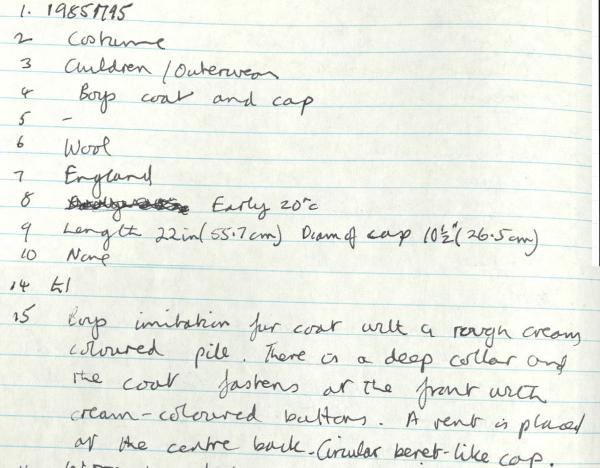 1. 1985/1795
2 Costume
3 Children / Outerwear
4 Boys coat and cap
5 -
6 Wool
7 England
8 Early 20°c
9 Length 22in (55.7cm) Diam of cap 10½" (26.5cm)
10 None
14 E1
15 Boys imitation fur coat with a rough cream
coloured pile. There is a deep collar and
the coat fastens at the front with
cream-coloured buttons. A vent is placed
at the centre back. Circular beret-like cap.